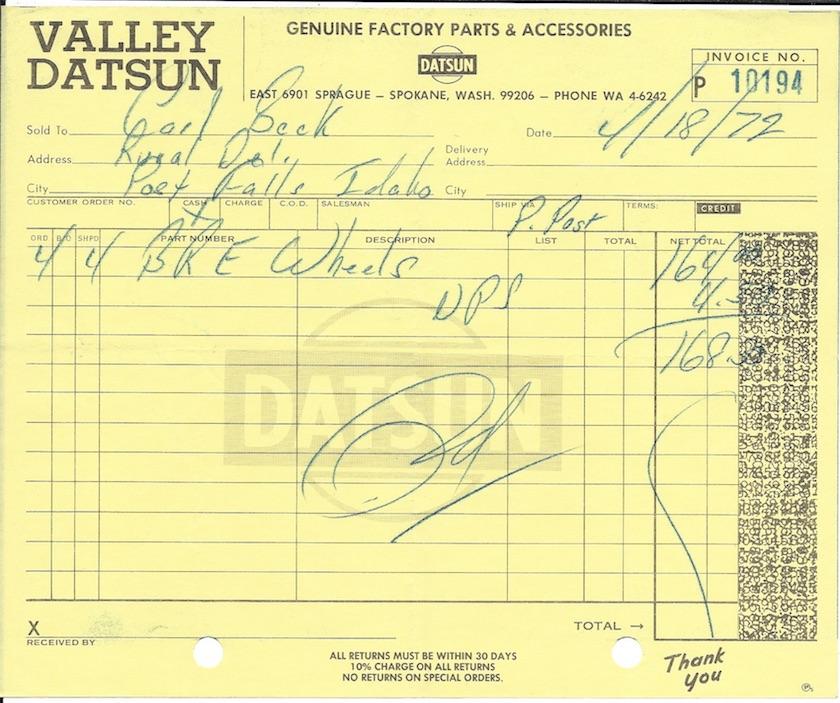 VALLEY DATSUN
GENUINE FACTORY PARTS & ACCESSORIES
DATSUN
EAST 6901 SPRAGUE – SPOKANE, WASH. 99206 – PHONE WA 4-6242
INVOICE NO.
P 10194
Sold To Carl Beck
Date 4/18/72
Address Rural Del.
Delivery Address
City Post Falls Idaho
City
CUSTOMER ORDER NO. CASH X CHARGE C.O.D. SALESMAN SHIP VIA P. Post TERMS: CREDIT
ORD B/O SHPD PART NUMBER DESCRIPTION LIST TOTAL NET TOTAL
4 4 BRE Wheels 164/00
UPS 4.
168
DATSUN
Pd
X
RECEIVED BY
TOTAL →
ALL RETURNS MUST BE WITHIN 30 DAYS
10% CHARGE ON ALL RETURNS
NO RETURNS ON SPECIAL ORDERS.
Thank you